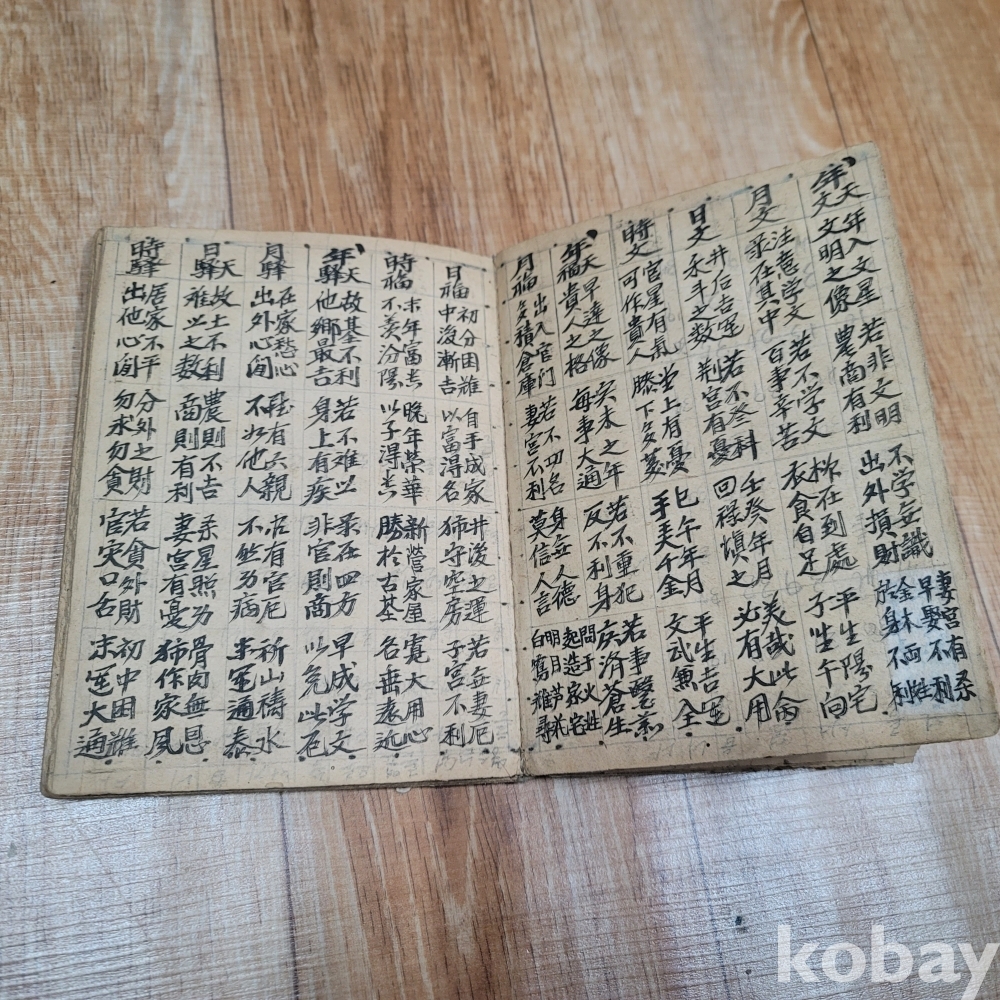 年天文 年入文星 文明之像 若非文明 農商有利 不学無識 出外損財 妻宮有杀 早娶不利 金木兩姓 於身不利
月文 注意学文 彔在其中 若不学文 百事辛苦 在到處 衣食自足 平生陽宅 子坐午向
日文 井后吉運 禾斗之数 若不登科 荆宮有憂 壬癸年月 回禄愼之 美哉此命 必有大用
時文 官星有氣 可作貴人 堂上有憂 膝下多 巳午年月 手弄千金 平生吉運 文武兼全
年天福 早達之像 貴人之格 未之年 每事大通 若不重犯 反不利身 若事醫 広済蒼生
月福 出入官门 多積倉庫 若不四名 妻宮不利 身無人德 莫信人言 問于火姓 起造家宅 明月芦花 白鷺難尋
日福 初分困難 中後漸吉 自手成家 以富得名 井後之運 獅守空房 若無妻厄 子宮不利
時福 末年富貴 不羨汾陽 晚年榮華 以子得貴 新營家屋 勝於古基 寬大用心 名垂遠近
年天驛 故基不利 他鄉最吉 若不難以 身上有疾 杀在四方 非官則商 早成学文 以免此厄
月驛 在家愁心 出外心閒 雖有六親 不如他人 若有官厄 不然为病 祈山禱水 末運通泰
日天驛 故土不利 難以之数 農則不吉 商則有利 杀星照为 妻宮有憂 骨肉無恩 獅作家風
時驛 居家不平 出他心閒 分外之財 勿求勿貪 若貪外財 官灾口舌 初中困難 末運大通
kobay